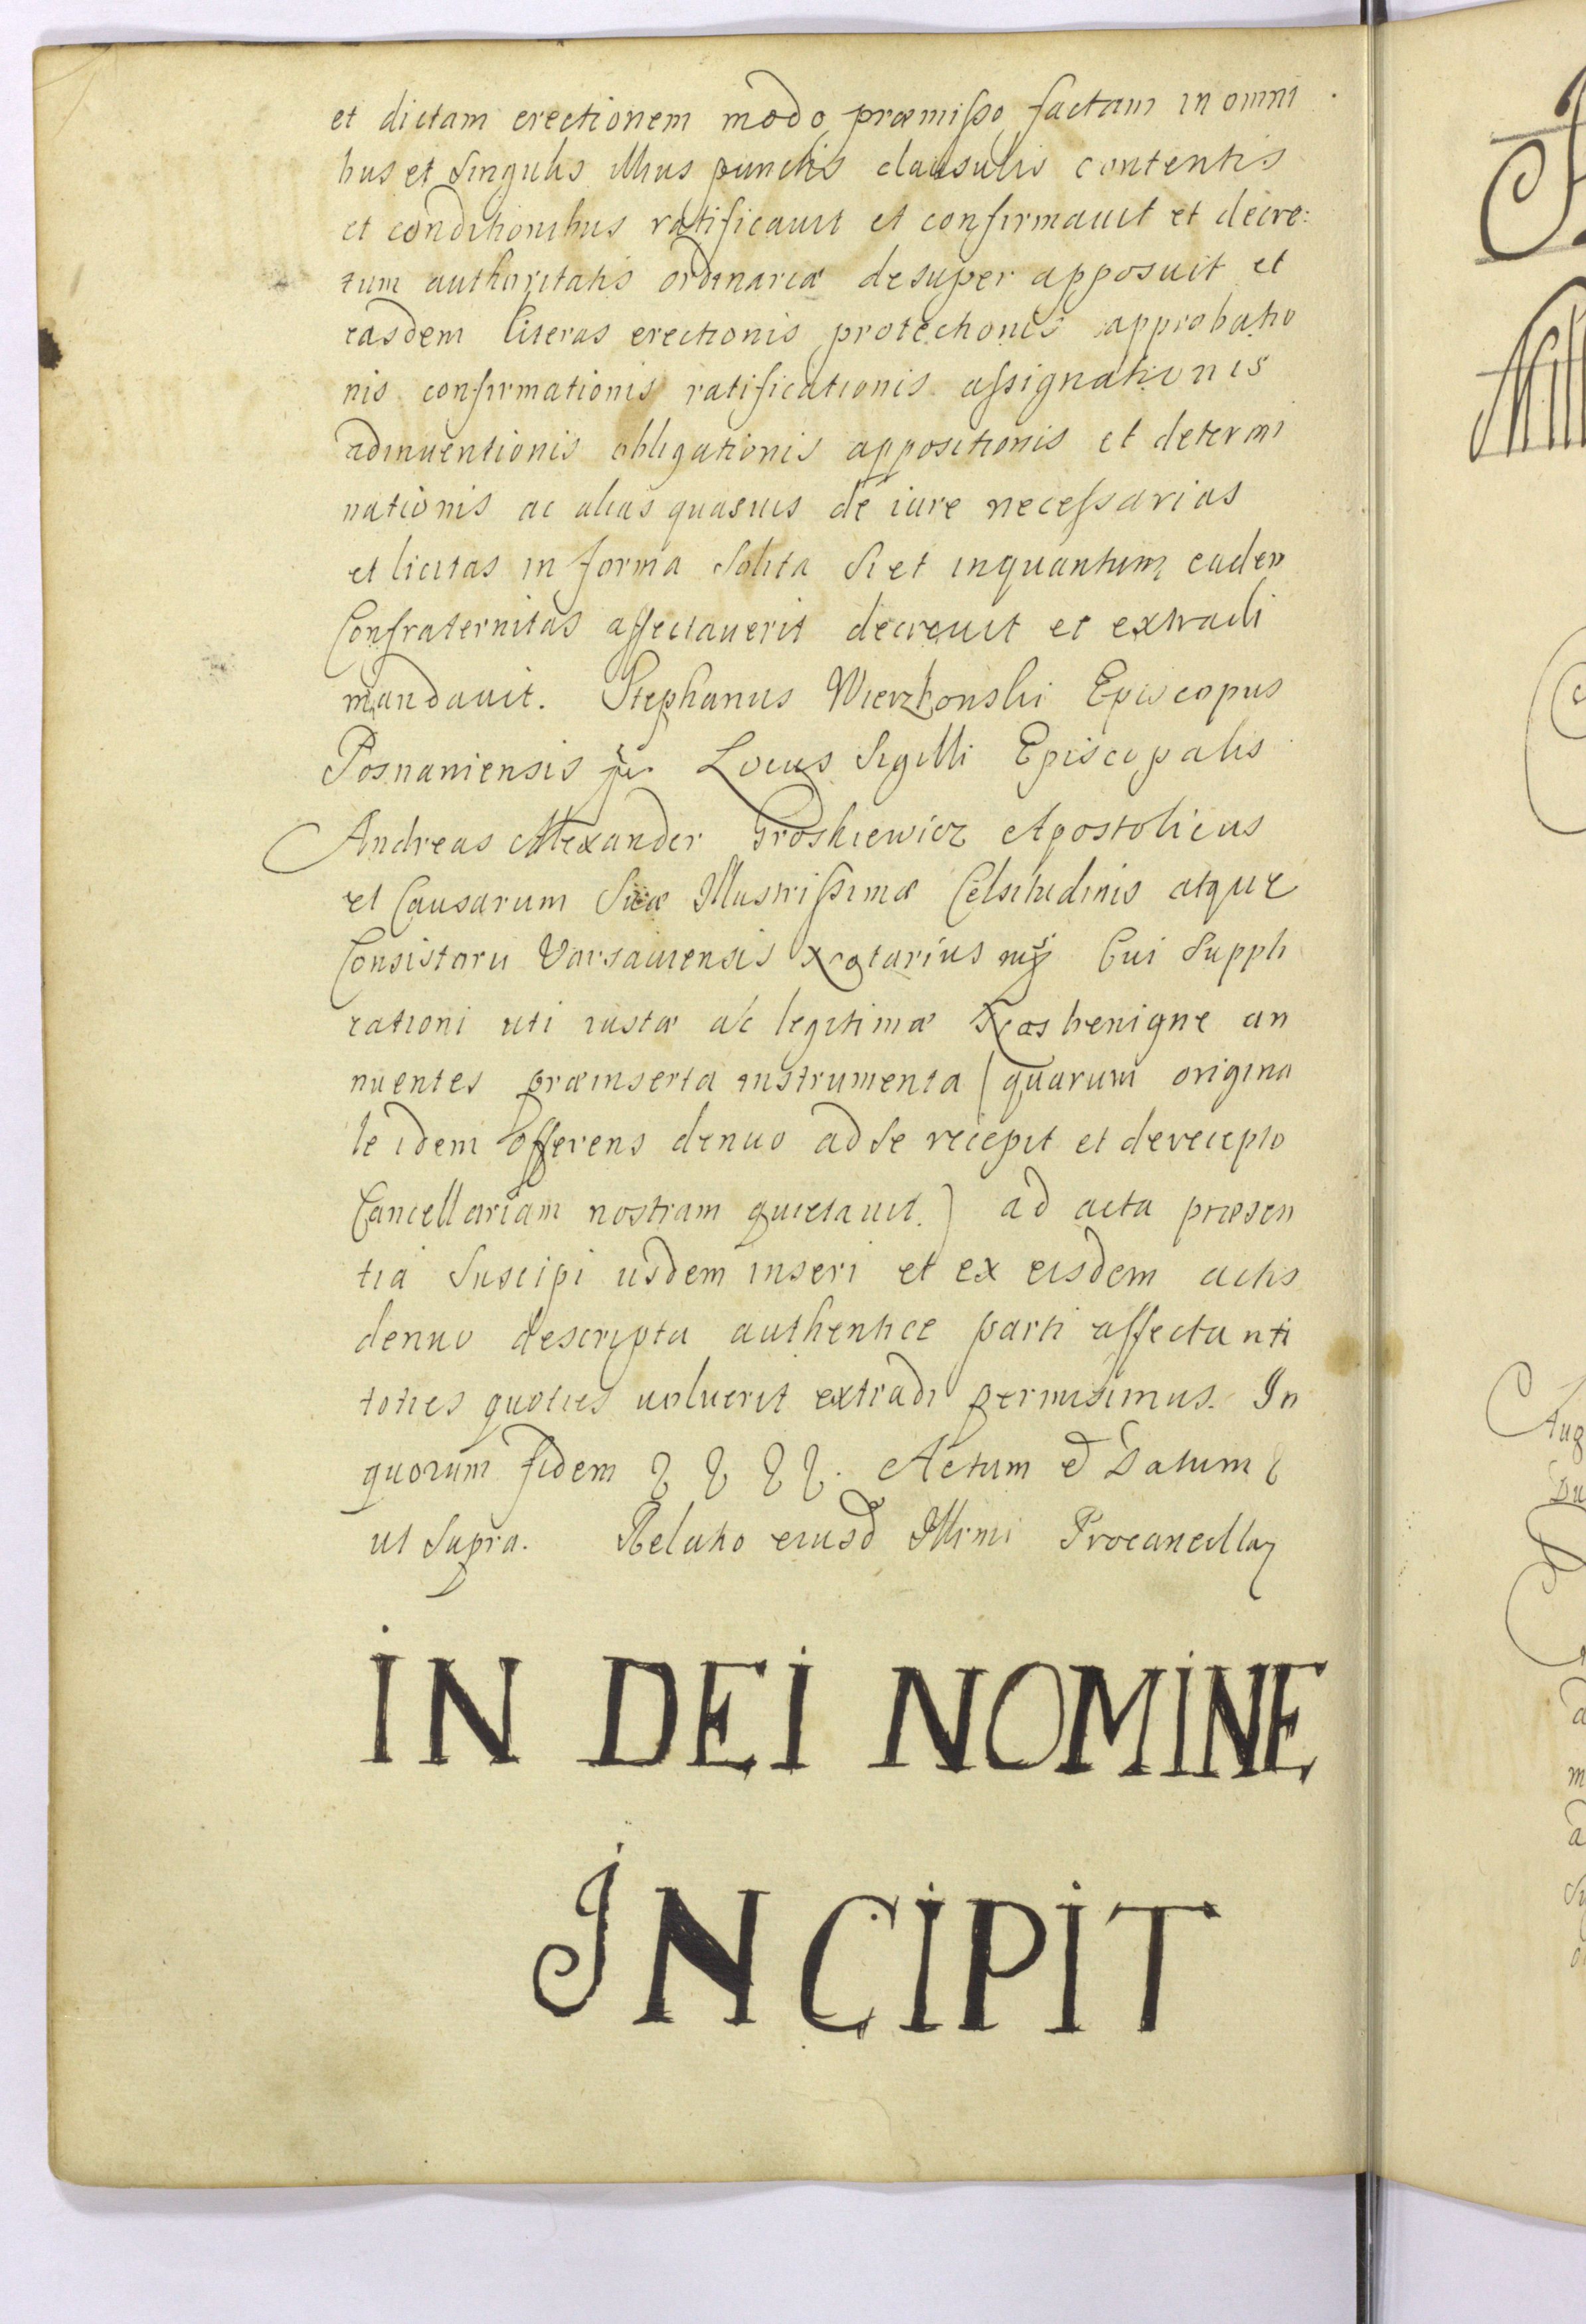 et dictam erectionem modo præmisso factam in omni
bus et singulis illius punctis clausulis contentis
et conditionibus ratificauit et confirmauit et decre:
tum authoritatis ordinariæ desuper apposuit et
easdem literas erectionis protectionis approbatio
nis confirmationis ratificationis assignationis
adinuentionis obligationis appositionis et determi
nationis ac alias quasuis de iure necessarias
et licitas in forma solita si et inquantum eadem
Confraternitas affectauerit decreuit et extradi
mandauit. Stephanus Wierzbouski Episcopus
Posnaniensis Locus Sigilli Episcopalis
Andreas Alexander Groskiewicz Apostolicus
et Causarum Suæ Illustrissimæ Celsitudinis atque
Consistorii Varsauiensis Notarius Cui suppli
cationi uti iustæ ac legitimæ Nos benigne an
nuentes præinserta instrumenta (quarum origina
le idem offerens denuo ad se recepit et de recepto
Cancellariam nostram quietauit.) ad acta præsen
tia suscipi iisdem inseri et ex eisdem actis
denuo descripta authentice parti affectanti
toties quoties uoluerit extradi permisimus. In
quorum fidem Actum et Datum
ut supra. Relatio eiusd Illrmi Procancellarÿ
IN DEI NOMINE
INCIPIT